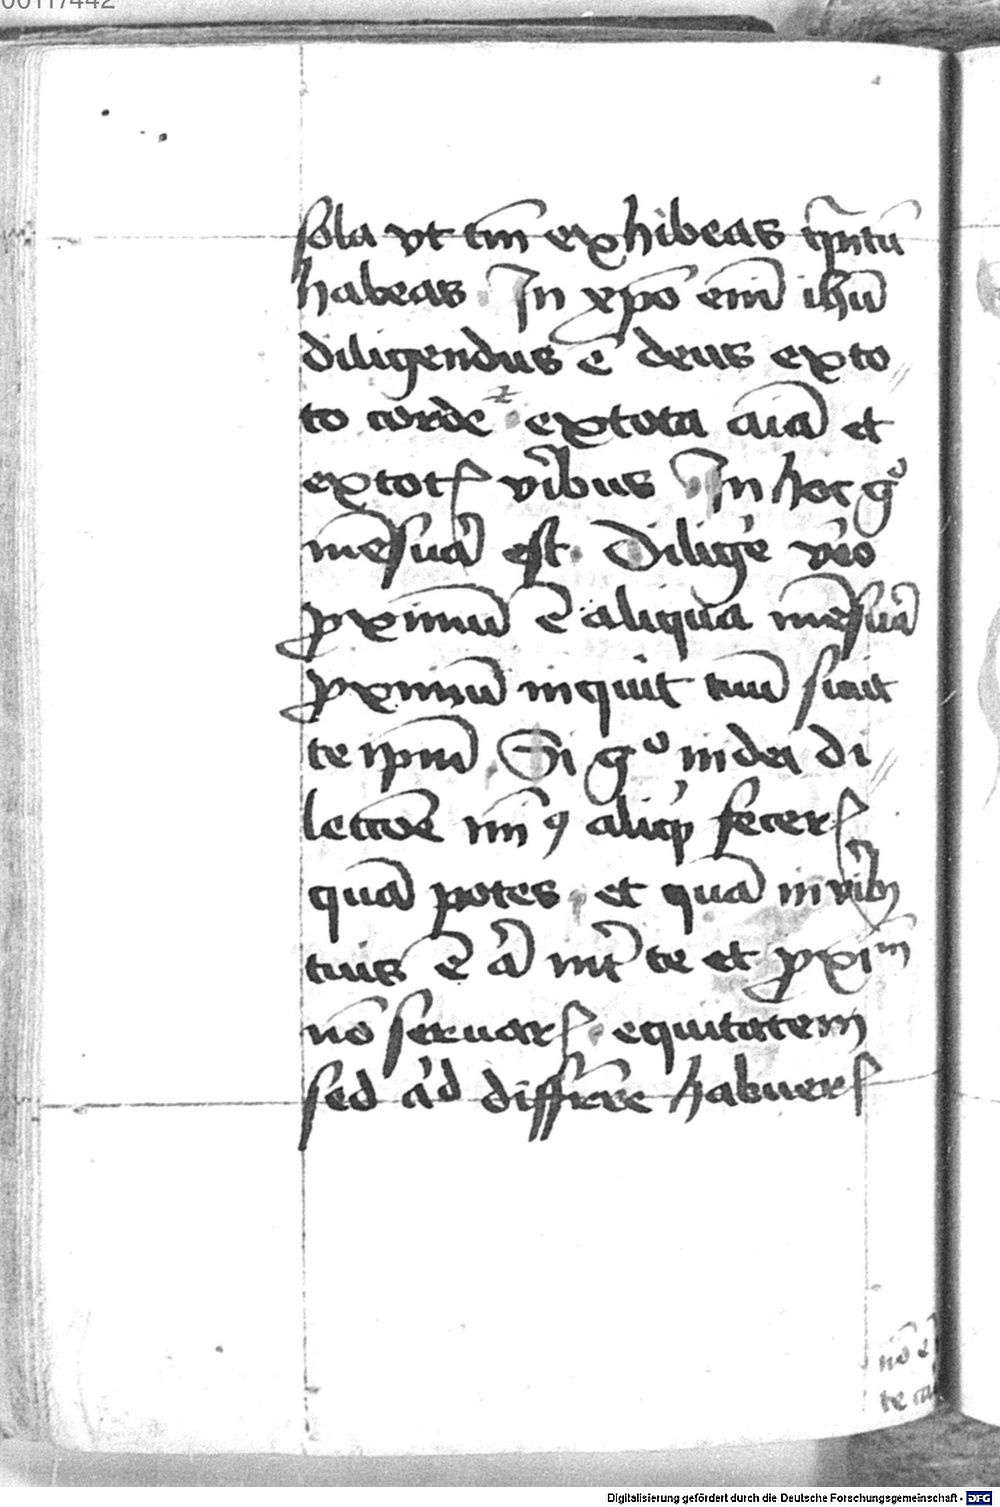 00117442
sola vt tm̄ exhibeas qͣntū
habeas In xp̄o eni̅ ihū
diligendus ē deus ex to
to corde ⁊ ex tota aīa et
ex totꝭ viͥbus In hoc gͦ
mēsuͣ est Diligeͤ v̓o
ꝓximū ē aliqua mēsuͣ
ꝓximū inquit tuū sicut
te ip̄m Si gͦ in dei di
lectōe mīꝰ aliqͥd fecerꝭ
quā potes et quā in viͥbꝫ
tuis ē aͣ int̓ te et ꝓxiͫ
nō seruarꝭ equitatem
sed habuerꝭ
nō ē
te
Digitalisierung gefördert durch die Deutsche Forschungsgemeinschaft - DFG